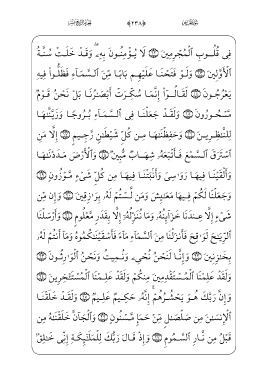 فِى قُلُوبِ ٱلْمُجْرِمِينَ ۝ لَا يُؤْمِنُونَ بِهِۦ وَقَدْ خَلَتْ سُنَّةُ
ٱلْأَوَّلِينَ ۝ وَلَوْ فَتَحْنَا عَلَيْهِم بَابًا مِّنَ ٱلسَّمَآءِ فَظَلُّوا۟ فِيهِ
يَعْرُجُونَ ۝ لَقَالُوٓا۟ إِنَّمَا سُكِّرَتْ أَبْصَٰرُنَا بَلْ نَحْنُ قَوْمٌ
مَّسْحُورُونَ ۝ وَلَقَدْ جَعَلْنَا فِى ٱلسَّمَآءِ بُرُوجًا وَزَيَّنَّٰهَا
لِلنَّٰظِرِينَ ۝ وَحَفِظْنَٰهَا مِن كُلِّ شَيْطَٰنٍ رَّجِيمٍ ۝ إِلَّا مَنِ
ٱسْتَرَقَ ٱلسَّمْعَ فَأَتْبَعَهُۥ شِهَابٌ مُّبِينٌ ۝ وَٱلْأَرْضَ مَدَدْنَٰهَا
وَأَلْقَيْنَا فِيهَا رَوَٰسِىَ وَأَنۢبَتْنَا فِيهَا مِن كُلِّ شَىْءٍ مَّوْزُونٍ ۝
وَجَعَلْنَا لَكُمْ فِيهَا مَعَٰيِشَ وَمَن لَّسْتُمْ لَهُۥ بِرَٰزِقِينَ ۝ وَإِن مِّن
شَىْءٍ إِلَّا عِندَنَا خَزَآئِنُهُۥ وَمَا نُنَزِّلُهُۥٓ إِلَّا بِقَدَرٍ مَّعْلُومٍ ۝ وَأَرْسَلْنَا
ٱلرِّيَٰحَ لَوَٰقِحَ فَأَنزَلْنَا مِنَ ٱلسَّمَآءِ مَآءً فَأَسْقَيْنَٰكُمُوهُ وَمَآ أَنتُمْ لَهُۥ
بِخَٰزِنِينَ ۝ وَإِنَّا لَنَحْنُ نُحْىِۦ وَنُمِيتُ وَنَحْنُ ٱلْوَٰرِثُونَ ۝
وَلَقَدْ عَلِمْنَا ٱلْمُسْتَقْدِمِينَ مِنكُمْ وَلَقَدْ عَلِمْنَا ٱلْمُسْتَـْٔخِرِينَ ۝
وَإِنَّ رَبَّكَ هُوَ يَحْشُرُهُمْ إِنَّهُۥ حَكِيمٌ عَلِيمٌ ۝ وَلَقَدْ خَلَقْنَا
ٱلْإِنسَٰنَ مِن صَلْصَٰلٍ مِّنْ حَمَإٍ مَّسْنُونٍ ۝ وَٱلْجَآنَّ خَلَقْنَٰهُ مِن
قَبْلُ مِن نَّارِ ٱلسَّمُومِ ۝ وَإِذْ قَالَ رَبُّكَ لِلْمَلَٰٓئِكَةِ إِنِّى خَٰلِقٌۢ